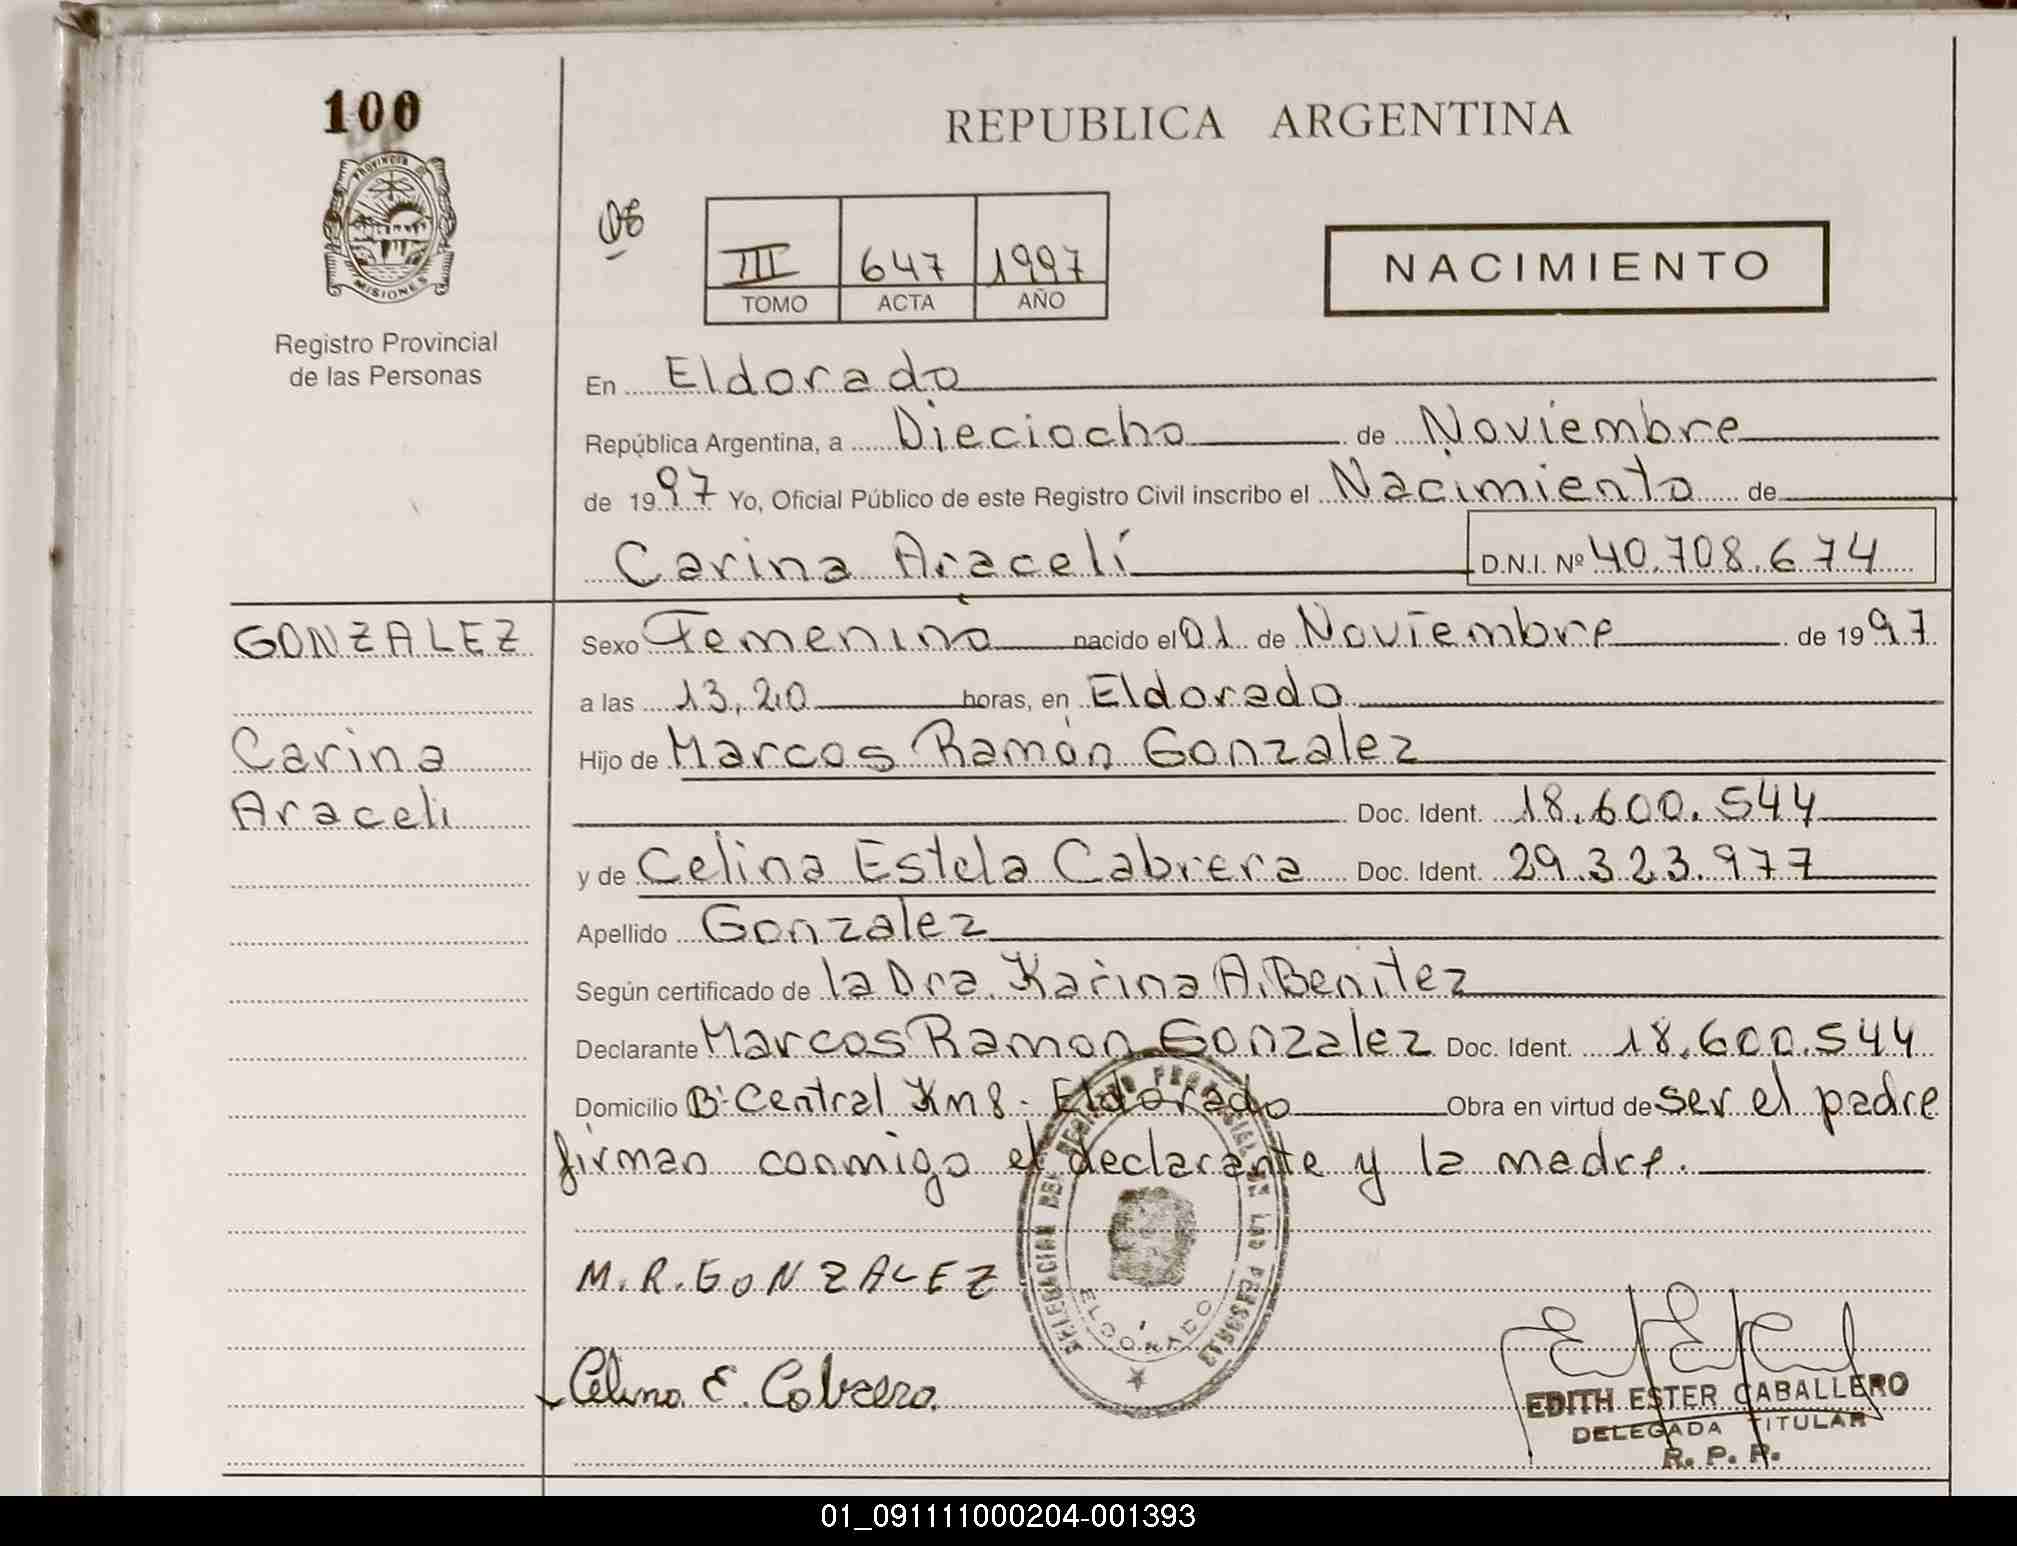 100
REPUBLICA ARGENTINA
PROVINCIA DE
MISIONES
Registro Provincial
de las Personas
08
III 647 1997
TOMO ACTA AÑO
NACIMIENTO
En Eldorado
República Argentina, a Dieciocho de Noviembre
de 1997 Yo, Oficial Público de este Registro Civil inscribo el Nacimiento de
Carina Aracelí D.N.I. Nº 40.708.674
GONZALEZ
Carina
Araceli
Sexo Femenino nacido el 01 de Noviembre de 1997
a las 13,20 horas, en Eldorado
Hijo de Marcos Ramón Gonzalez
Doc. Ident. 18.600.544
y de Celina Estela Cabrera Doc. Ident. 29.323.977
Apellido Gonzalez
Según certificado de la Dra. Karina A. Benitez
Declarante Marcos Ramon Gonzalez Doc. Ident. 18.600.544
Domicilio Bº Central Km 8 - Eldorado Obra en virtud de ser el padre
firman conmigo el declarante y la madre.
DELEGACION DEL REGISTRO PROVINCIAL DE LAS PERSONAS
ELDORADO
M.R.GONZALEZ
Celina E. Cabrera
EDITH ESTER CABALLERO
DELEGADA TITULAR
R. P. P.
01_091111000204-001393